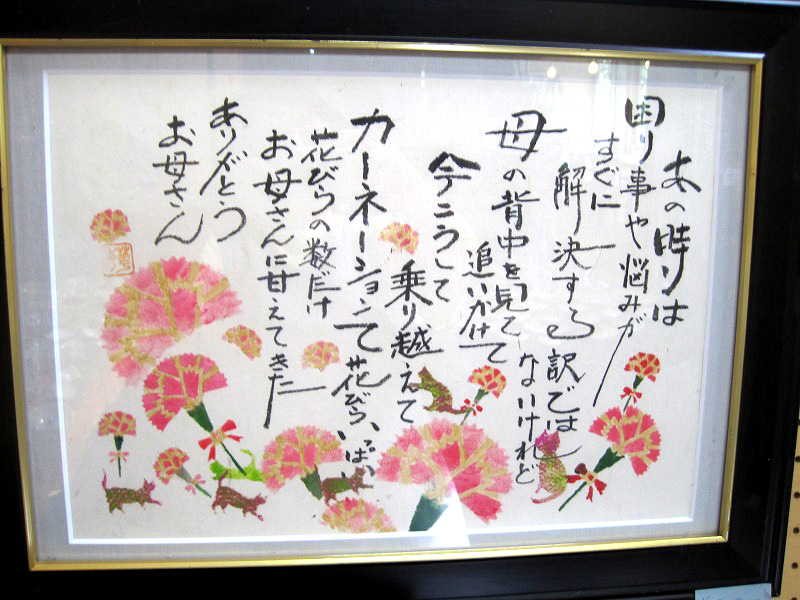 あの時は
困り事や悩みが
すぐに
解決する訳では
ないけれど
母の背中を見て
追いかけて
今こうして
乗り越えて
カーネーションて花びらいっぱい
花びらの数だけ
お母さんに甘えてきた
ありがとう
お母さん